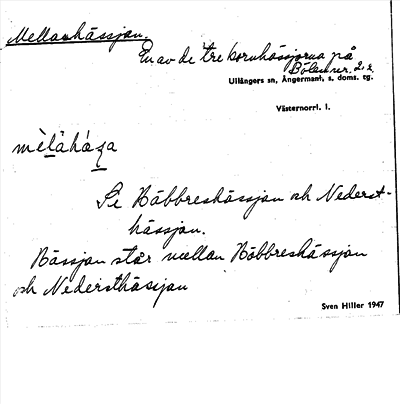 Mellanhässjan.
En av de tre kornhässjorna på
Bölen nr. 2.
Ullångers sn, Ångermanl. s. doms. tg.
Västernorrl. l.
Se Böbbreshässjan och Nederst-
hässjan.
Hässjan står mellan Böbbreshässjan
och Nedersthässjan
Sven Hiller 1947